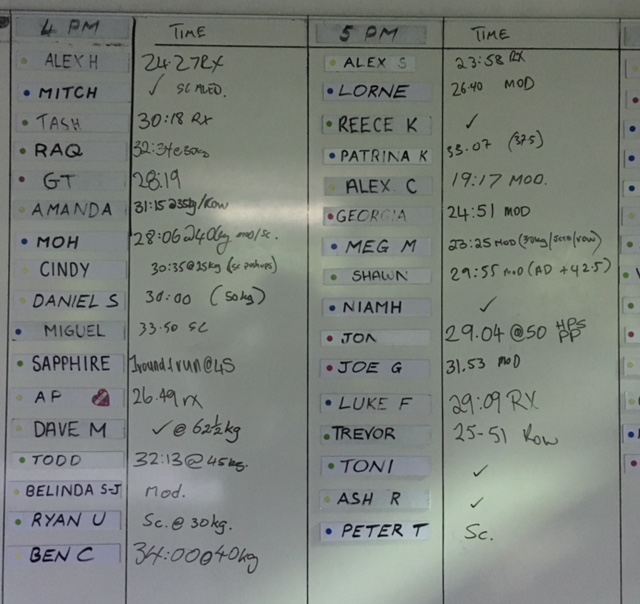 4 PM TIME
ALEX H 24.27 RX
MITCH ✓ SCALED.
TASH 30:18 RX
RAQ 32:34@30kg
GT 28:19
AMANDA 31:15@35kg/Row
MOH 28:06@40kg mod/sc.
CINDY 30:35@25kg (sc pushups)
DANIEL S 30:00 (50kg)
MIGUEL 33.50 SC
SAPPHIRE 1round 1 run@45
AP 26.49 rx
DAVE M ✓ @ 62½kg
TODD 32:13@45kg.
BELINDA S-J Mod.
RYAN U Sc. @ 30kg.
BEN C 34:00@40kg
5 PM TIME
ALEX S 23:58 RX
LORNE 26.40 MOD
REECE K ✓
PATRINA K 33.07 (37.5)
ALEX C 19:17 MOD.
GEORGIA 24:51 MOD
MEG M 23:25 MOD (30kg/ /row)
SHAWN 29:55 MOD (AD + 42.5)
NIAMH ✓
JON 29.04 @50 HPS PP
JOE G 31.53 MOD
LUKE F 29:09 RX
TREVOR 25-51 Row
TONI ✓
ASH R ✓
PETER T Sc.